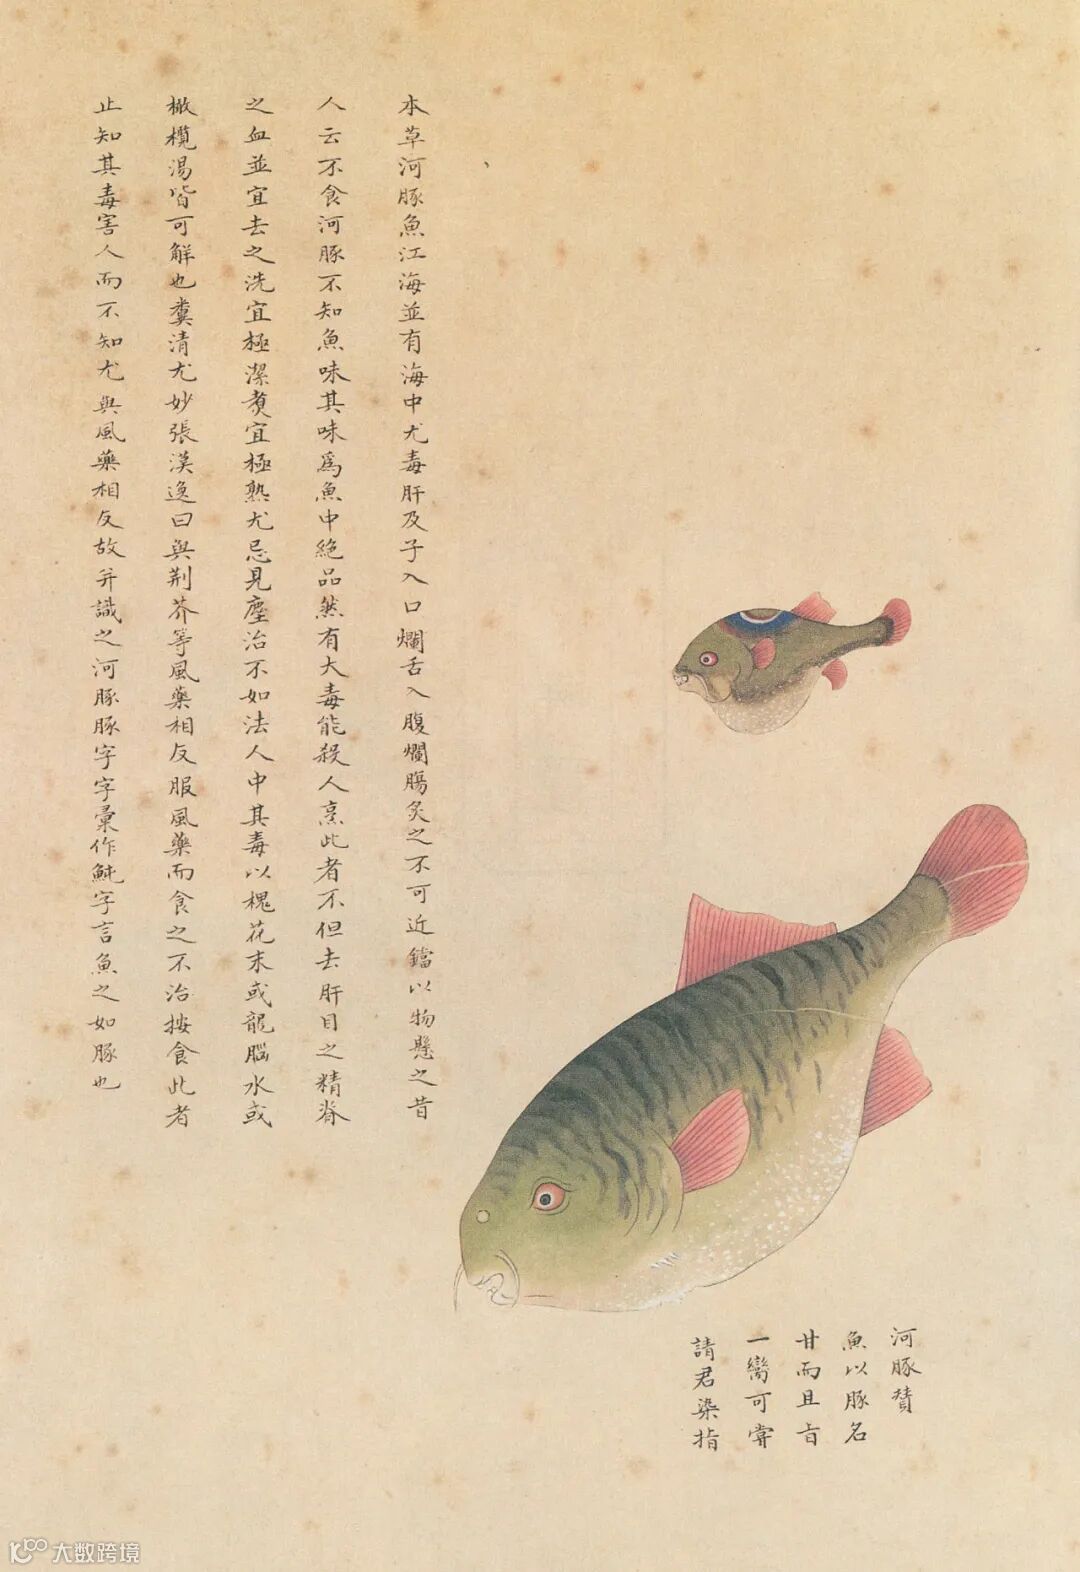 河豚賛
魚以豚名
甘而且旨
一臠可嘗
請君染指
本草河豚魚江海並有海中尤毒肝及子入口爛舌入腹爛腸炙之不可近鐺以物懸之昔
人云不食河豚不知魚味其味為魚中絶品然有大毒能殺人烹此者不但去肝目之精脊
之血並宜去之洗宜極潔煑宜極熟尤忌見塵治不如法人中其毒以槐花末或龍腦水或
橄欖湯皆可解也糞清尤妙張漢逸曰與荆芥等風藥相反服風藥而食之不治按食此者
止知其毒害人而不知尤與風藥相反故并識之河豚豚字字彙作魨字言魚之如豚也
大数跨境